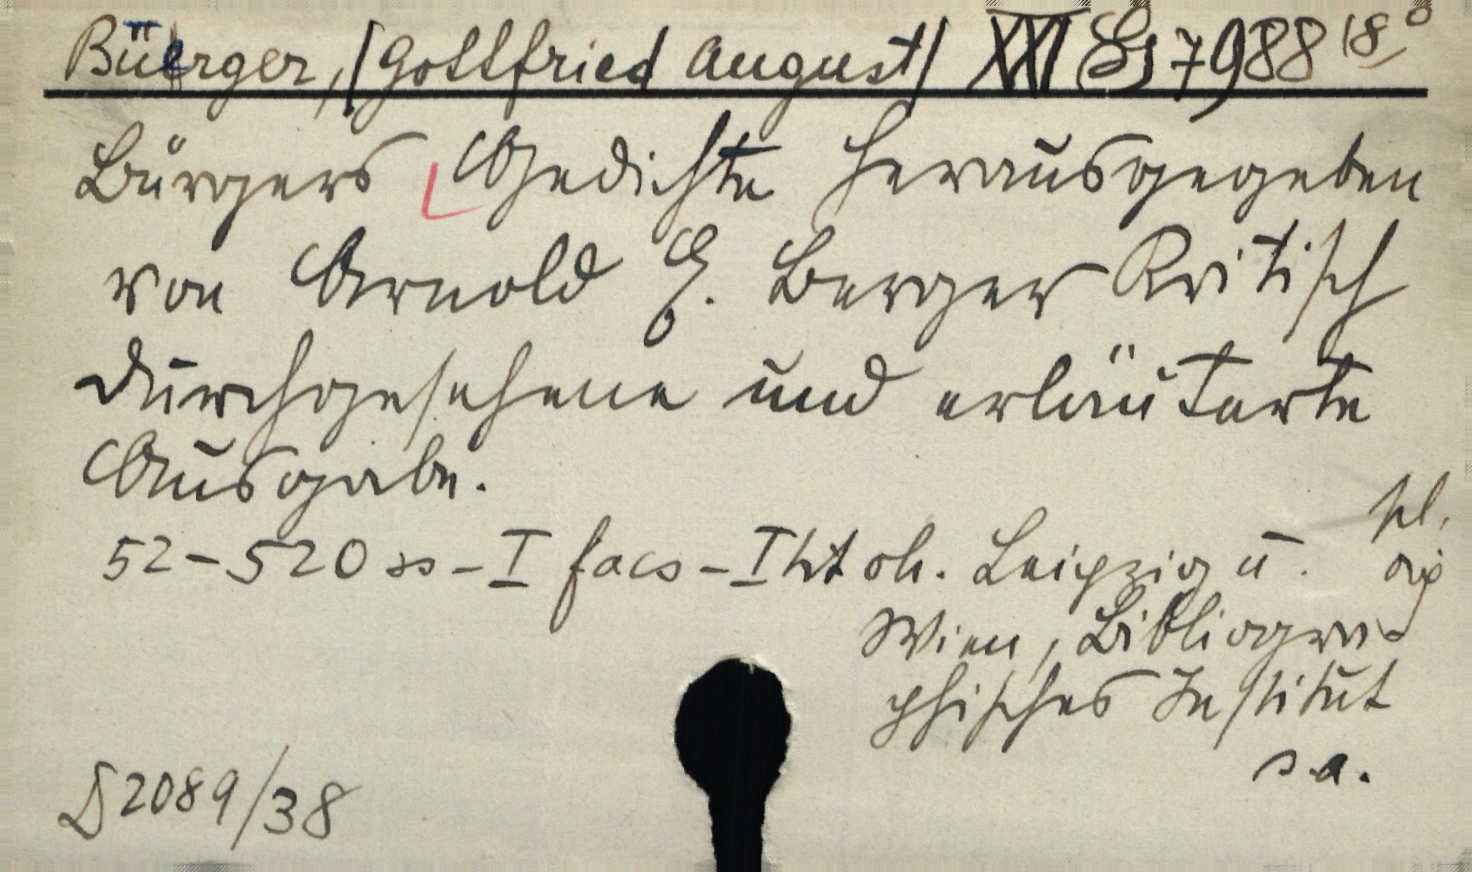 Büerger, [Gottfried August] XXI Ss 7988 (8°
Bürgers Gedichte herausgegeben
von Arnold E. Berger Kritisch
durchgesehene und erläuterte
Ausgabe.
52-520 ss - I facs - I tit oh. Leipzig u.
Wien, Bibliogra-
phisches Institut
s.a.
D 2089/38